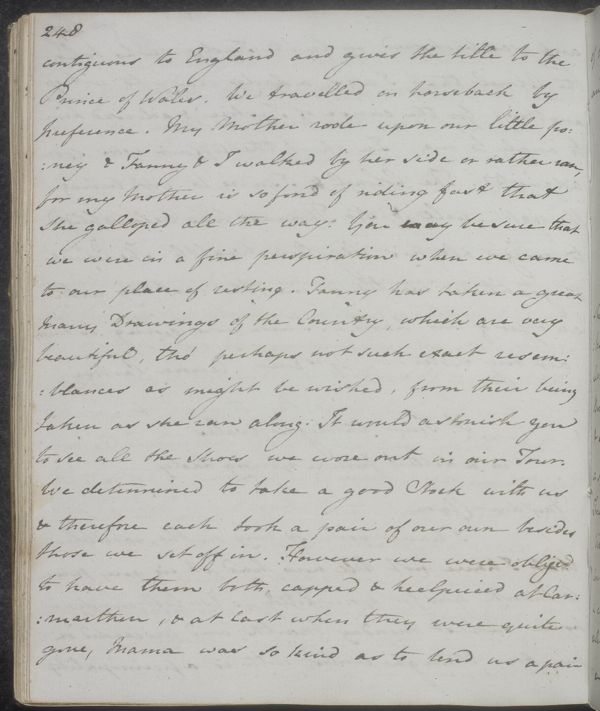 248
contiguous to England and gives the title to the
Prince of Wales. We travelled on horseback by
preference. My Mother rode upon our little po:
:ney & Fanny & I walked by her side or rather ran,
for my Mother is so fond of riding fast that
she galloped all the way. You may be sure that
we were in a fine perspiration when we came
to our place of resting. Fanny has taken a great
many Drawings of the Country, which are very
beautiful, tho' perhaps not such exact resem:
:blances as might be wished, from their being
taken as she ran along. It would astonish you
to see all the Shoes we wore out in our Tour.
We determined to take a good Stock with us
& therefore each took a pair of our own besides
those we set off in. However we were obliged
to have them both capped & heelpieced at Car:
:marthen, & at last when they were quite
gone, Mama was so kind as to lend us a pair